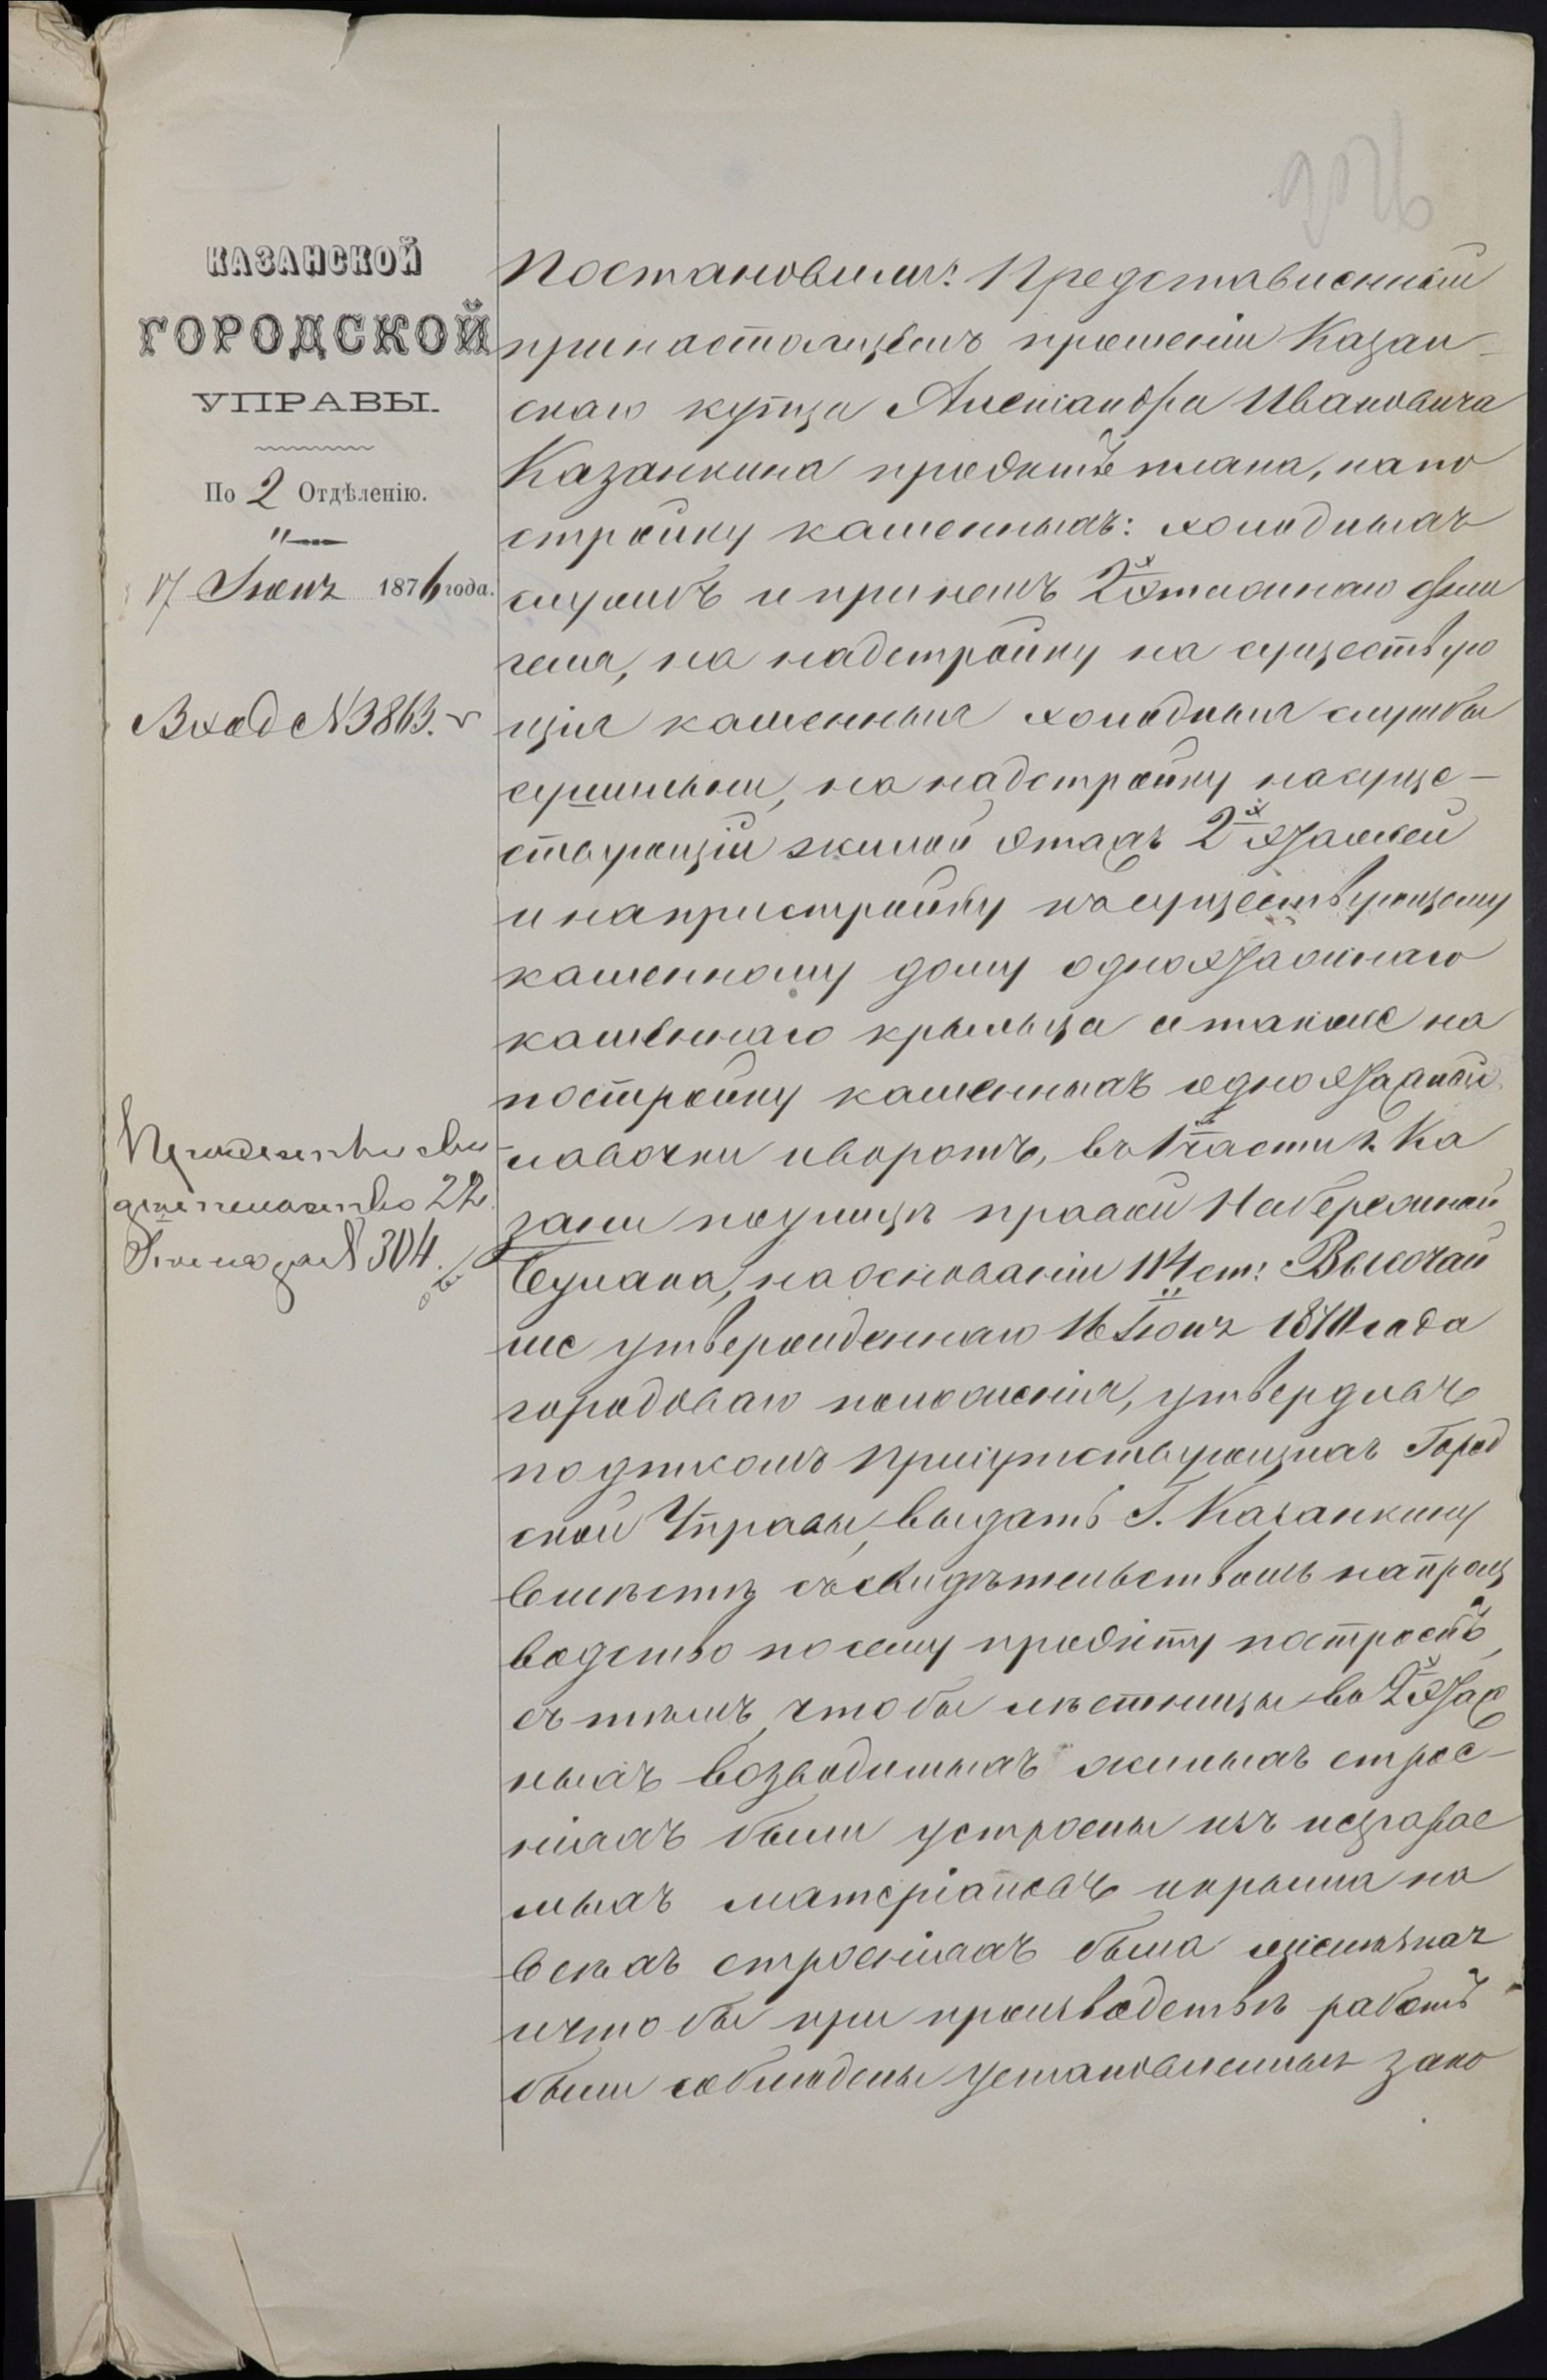 КАЗАНСКОЙ
ГОРОДСКОЙ
УПРАВЫ.
По 2 Отдѣленію.
17 Іюня 1876 года.
Вход №3863.
22
Іюня за № 304.
Постановили: Представленный
при настоящемъ прошеніи Казан-
скаго купца Александра Ивановича
Казанкина проэктъ плана, на по
стройку каменныхъ: холодныхъ
службъ и при немъ 2х этажнаго фли
геля, на надстройку на существую
щія каменныя холодныя службы
сушильни, на надстройку на суще-
ствующій жилой этажъ 2й этажей
и на пристройку къ существующему
каменному дому одноэтажнаго
каменнаго крыльца и также на
постройку каменныхъ одноэтажной
лавочки и воротъ, въ 1й части г. Ка
зани по улицѣ правой Набережной
Булака, на основаніи 114 ст: Высочай
ше утвержденнаго 16 Іюня 1870 года
городоваго положенія, утвердивъ
подписомъ присутствующихъ Город
ской Управы, выдать Г. Казанкину
вмѣстѣ съ свидѣтельствомъ на произ
водство по сему проэкту построекъ,
съ тѣмъ, чтобы лѣстницы въ 2х этаж
ныхъ возводимыхъ жилыхъ строе-
ніяхъ были устроены изъ несгорае
мыхъ матеріаловъ и крыша на
всѣхъ строеніяхъ была желѣзная
и чтобы при производствѣ работъ
были соблюдены установленныя зако